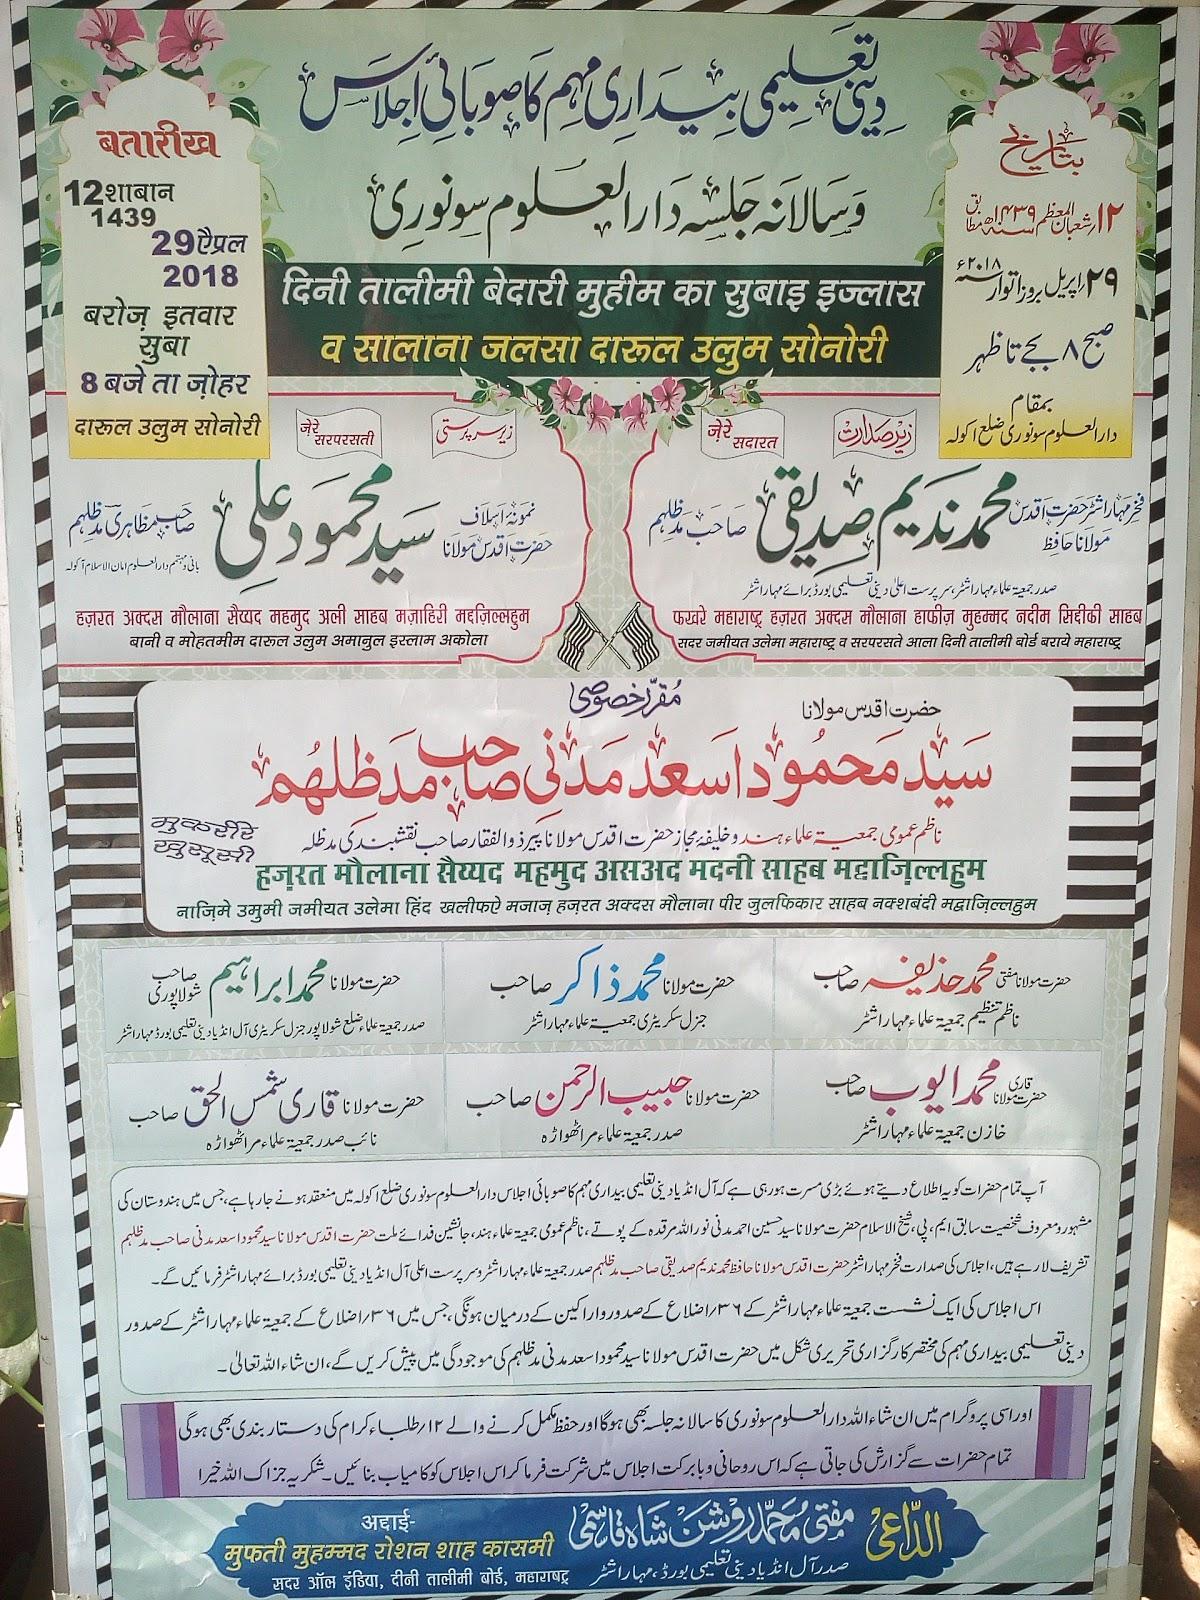 دینی تعلیمی بیداری مہم کا صوبائی اجلاس
و سالانہ جلسہ دارالعلوم سونوری
दिनी तालीमी बेदारी मुहीम का सुबाइ इज्लास
व सालाना जलसा दारूल उलुम सोनोरी
بتاریخ
۱۲؍شعبان المعظم ۱۴۳۹ھ مطابق
۲۹؍اپریل بروز اتوار سنہ ۲۰۱۸ء
صبح ۸ بجے تا ظہر
بمقام
دارالعلوم سونوری ضلع اکولہ
बतारीख
12 शाबान
1439
29 ऐप्रल
2018
बरोज़ इतवार
सुबा
8 बजे ता ज़ोहर
दारूल उलुम सोनोरी
زیر صدارت
ज़ेरे सदारत
فخر مہاراشٹر حضرت اقدس مولانا حافظ محمد ندیم صدیقی صاحب مدظلہم
صدر جمعیۃ علماء مہاراشٹر، سرپرست اعلیٰ دینی تعلیمی بورڈ برائے مہاراشٹر
फखरे महाराष्ट्र हज़रत अक्दस मौलाना हाफीज़ मुहम्मद नदीम सिद्दीकी साहब
सदर जमीयत उलेमा महाराष्ट्र व सरपरसते आला दिनी तालीमी बोर्ड बराये महाराष्ट्र
زیر سرپرستی
ज़ेरे सरपरसती
نمونۂ اسلاف حضرت اقدس مولانا سید محمود علی صاحب مظاہری مدظلہم
بانی و مہتمم دارالعلوم امان الاسلام آکولہ
हज़रत अक्दस मौलाना सैय्यद महमुद अली साहब मज़ाहिरी मद्दज़िल्लहुम
बानी व मोहतमीम दारूल उलुम अमानुल इस्लाम अकोला
مقرر خصوصی
حضرت اقدس مولانا
سید محمود اسعد مدنی صاحب مدظلہم
ناظم عمومی جمعیۃ علماء ہند و خلیفۂ مجاز حضرت اقدس مولانا پیر ذوالفقار صاحب نقشبندی مدظلہ
मुकर्रीरे
खुसूसी
हज़रत मौलाना सैय्यद महमुद असअद मदनी साहब मद्दाज़िल्लहुम
नाज़िमे उमुमी जमीयत उलेमा हिंद खलीफऐ मजाज़ हज़रत अक्दस मौलाना पीर जुलफिकार साहब नक्शबंदी मद्दाज़िल्लहुम
حضرت مولانا مفتی محمد حذیفہ صاحب
ناظم تنظیم جمعیۃ علماء مہاراشٹر
حضرت مولانا محمد ذاکر صاحب
جنرل سکریٹری جمعیۃ علماء مہاراشٹر
حضرت مولانا محمد ابراہیم صاحب شولاپوری
صدر جمعیۃ علماء ضلع شولاپور جنرل سکریٹری آل انڈیا دینی تعلیمی بورڈ مہاراشٹر
حضرت مولانا قاری محمد ایوب صاحب
خازن جمعیۃ علماء مہاراشٹر
حضرت مولانا حبیب الرحمن صاحب
صدر جمعیۃ علماء مراٹھواڑہ
حضرت مولانا قاری شمس الحق صاحب
نائب صدر جمعیۃ علماء مراٹھواڑہ
آپ تمام حضرات کو یہ اطلاع دیتے ہوئے بڑی مسرت ہو رہی ہے کہ آل انڈیا دینی تعلیمی بیداری مہم کا صوبائی اجلاس دارالعلوم سونوری ضلع اکولہ میں منعقد ہونے جا رہا ہے، جس میں ہندوستان کی
مشہور و معروف شخصیت سابق ایم، پی، شیخ الاسلام حضرت مولانا سید حسین احمد مدنی نور اللہ مرقدہ کے پوتے، ناظم عمومی جمعیۃ علماء ہند، جانشین فدائے ملت حضرت اقدس مولانا سید محمود اسعد مدنی صاحب مدظلہم
تشریف لا رہے ہیں، اجلاس کی صدارت فخر مہاراشٹر حضرت اقدس مولانا حافظ محمد ندیم صدیقی صاحب مدظلہم صدر جمعیۃ علماء مہاراشٹر و سرپرست اعلی آل انڈیا دینی تعلیمی بورڈ برائے مہاراشٹر فرمائیں گے۔
اس اجلاس کی ایک نشست جمعیۃ علماء مہاراشٹر کے ۳۶؍اضلاع کے صدور و اراکین کے درمیان ہونگی، جس میں ۳۶؍اضلاع کے جمعیۃ علماء مہاراشٹر کے صدور
دینی تعلیمی بیداری مہم کی مختصر کارگزاری تحریری شکل میں حضرت اقدس مولانا سید محمود اسعد مدنی مدظلہم کی موجودگی میں پیش کریں گے، ان شاء اللہ تعالیٰ۔
اور اسی پروگرام میں ان شاء اللہ دارالعلوم سونوری کا سالانہ جلسہ بھی ہوگا اور حفظ مکمل کرنے والے ۱۲؍طلباء کرام کی دستار بندی بھی ہوگی
تمام حضرات سے گزارش کی جاتی ہے کہ اس روحانی و بابرکت اجلاس میں شرکت فرما کر اس اجلاس کو کامیاب بنائیں۔ شکریہ جزاک اللہ خیرا
الدّاعی
مفتی محمد روشن شاہ قاسمی
صدر آل انڈیا دینی تعلیمی بورڈ، مہاراشٹر
अद्दाई-
मुफती मुहम्मद रोशन शाह कासमी
सदर ऑल इंडिया, दीनी तालीमी बोर्ड, महाराष्ट्र